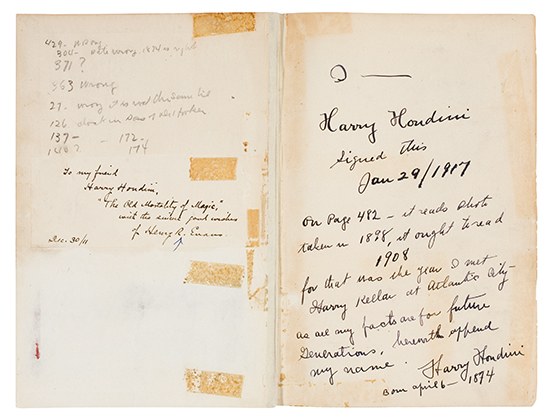 429- wrong
304- date wrong 1874 is right
371 ?
363 wrong
27. wrong
126
137- - 172-
174
To my friend
Harry Houdini,
"The Old Mortality of Magic,"
with the sincere good wishes
of Henry R. Evans.
Dec. 30/11
Harry Houdini
Signed this
Jan 29/1917
On Page 482 - it reads Photo
taken in 1898, it ought to read
1908
for that was the year I met
Harry Kellar at Atlantic City
as all my facts are for future
Generations, herewith append
my name. Harry Houdini
Born april 6 - 1874